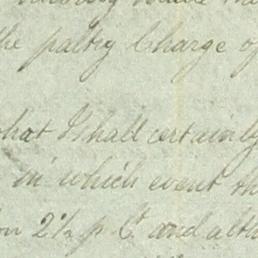 the paltry Charge of
that I shall certainly
in which event th
on 2½ p Ct and alth